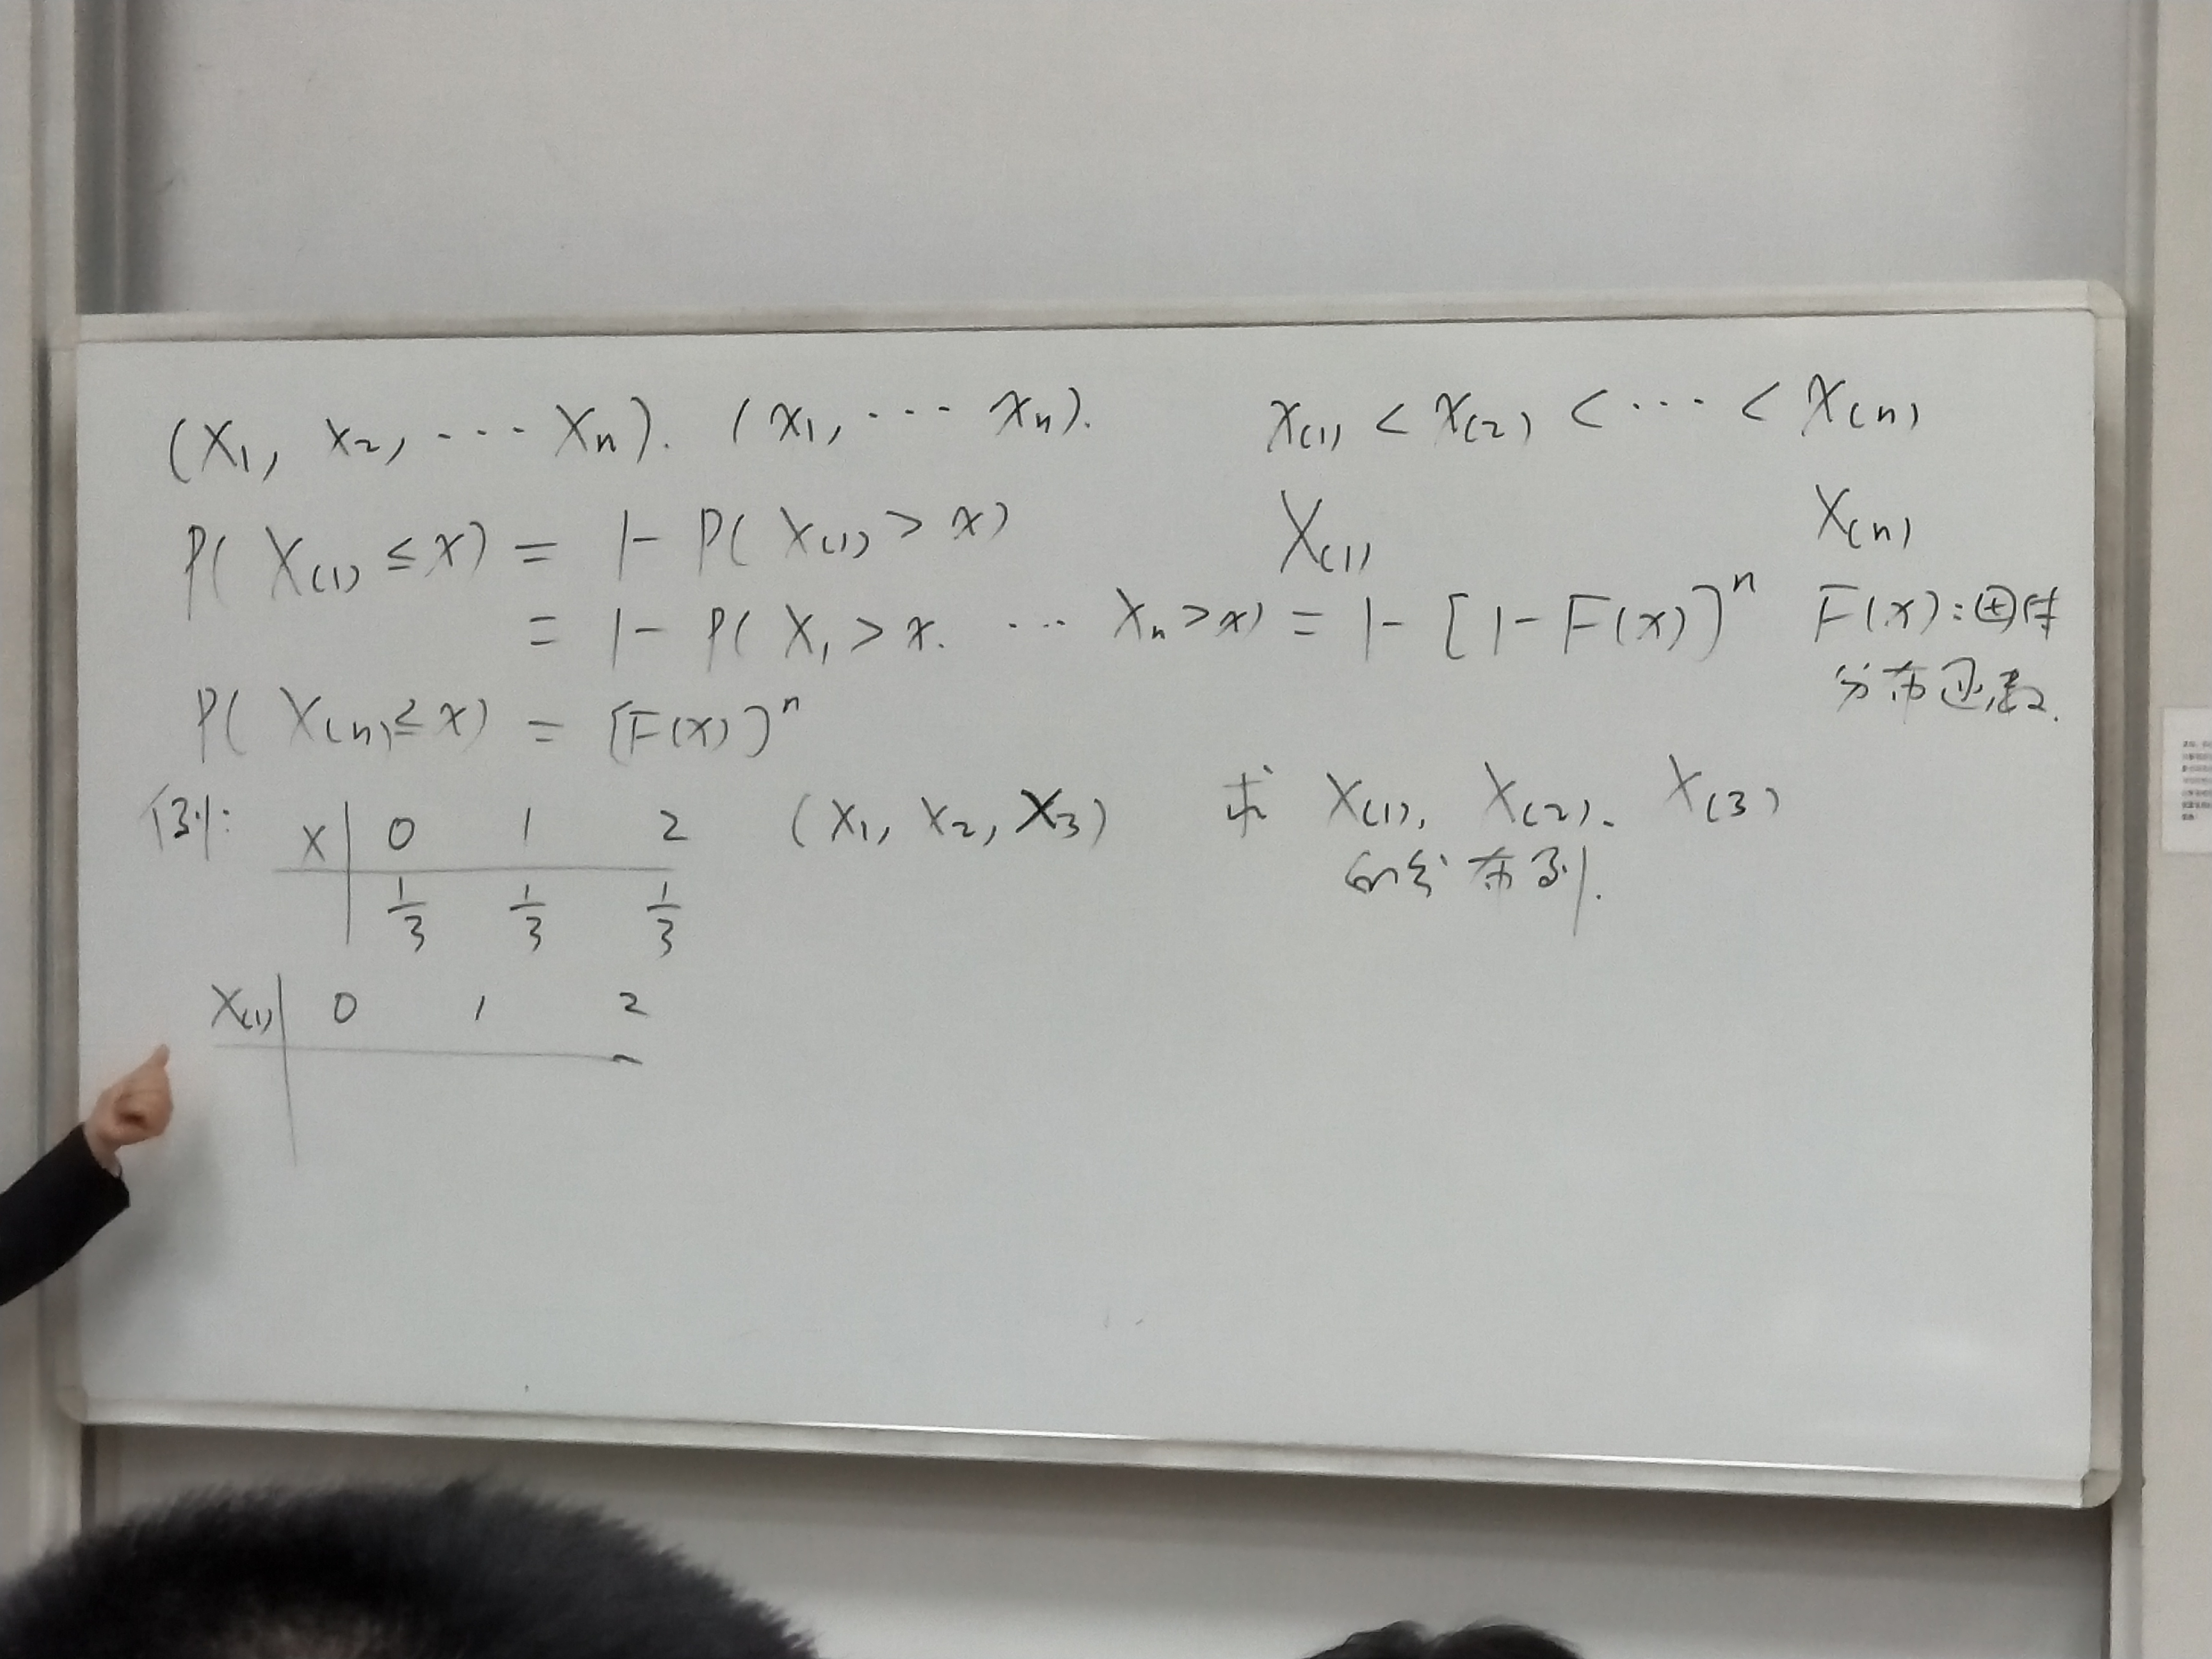 (X₁, X₂, ··· Xₙ). (x₁, ··· xₙ). x₍₁₎ < x₍₂₎ < ··· < x₍ₙ₎
P( X₍₁₎ ≤ x) = 1 - P( X₍₁₎ > x) X₍₁₎ X₍ₙ₎
= 1 - P( X₁ > x. ··· Xₙ > x) = 1 - [1 - F(x)]ⁿ F(x): 总体
分布函数.
P( X₍ₙ₎ ≤ x) = [F(x)]ⁿ
例: X 0 1 2 (X₁, X₂, X₃) 求 X₍₁₎, X₍₂₎、 X₍₃₎
1/3 1/3 1/3 的分布列.
X₍₁₎ 0 1 2